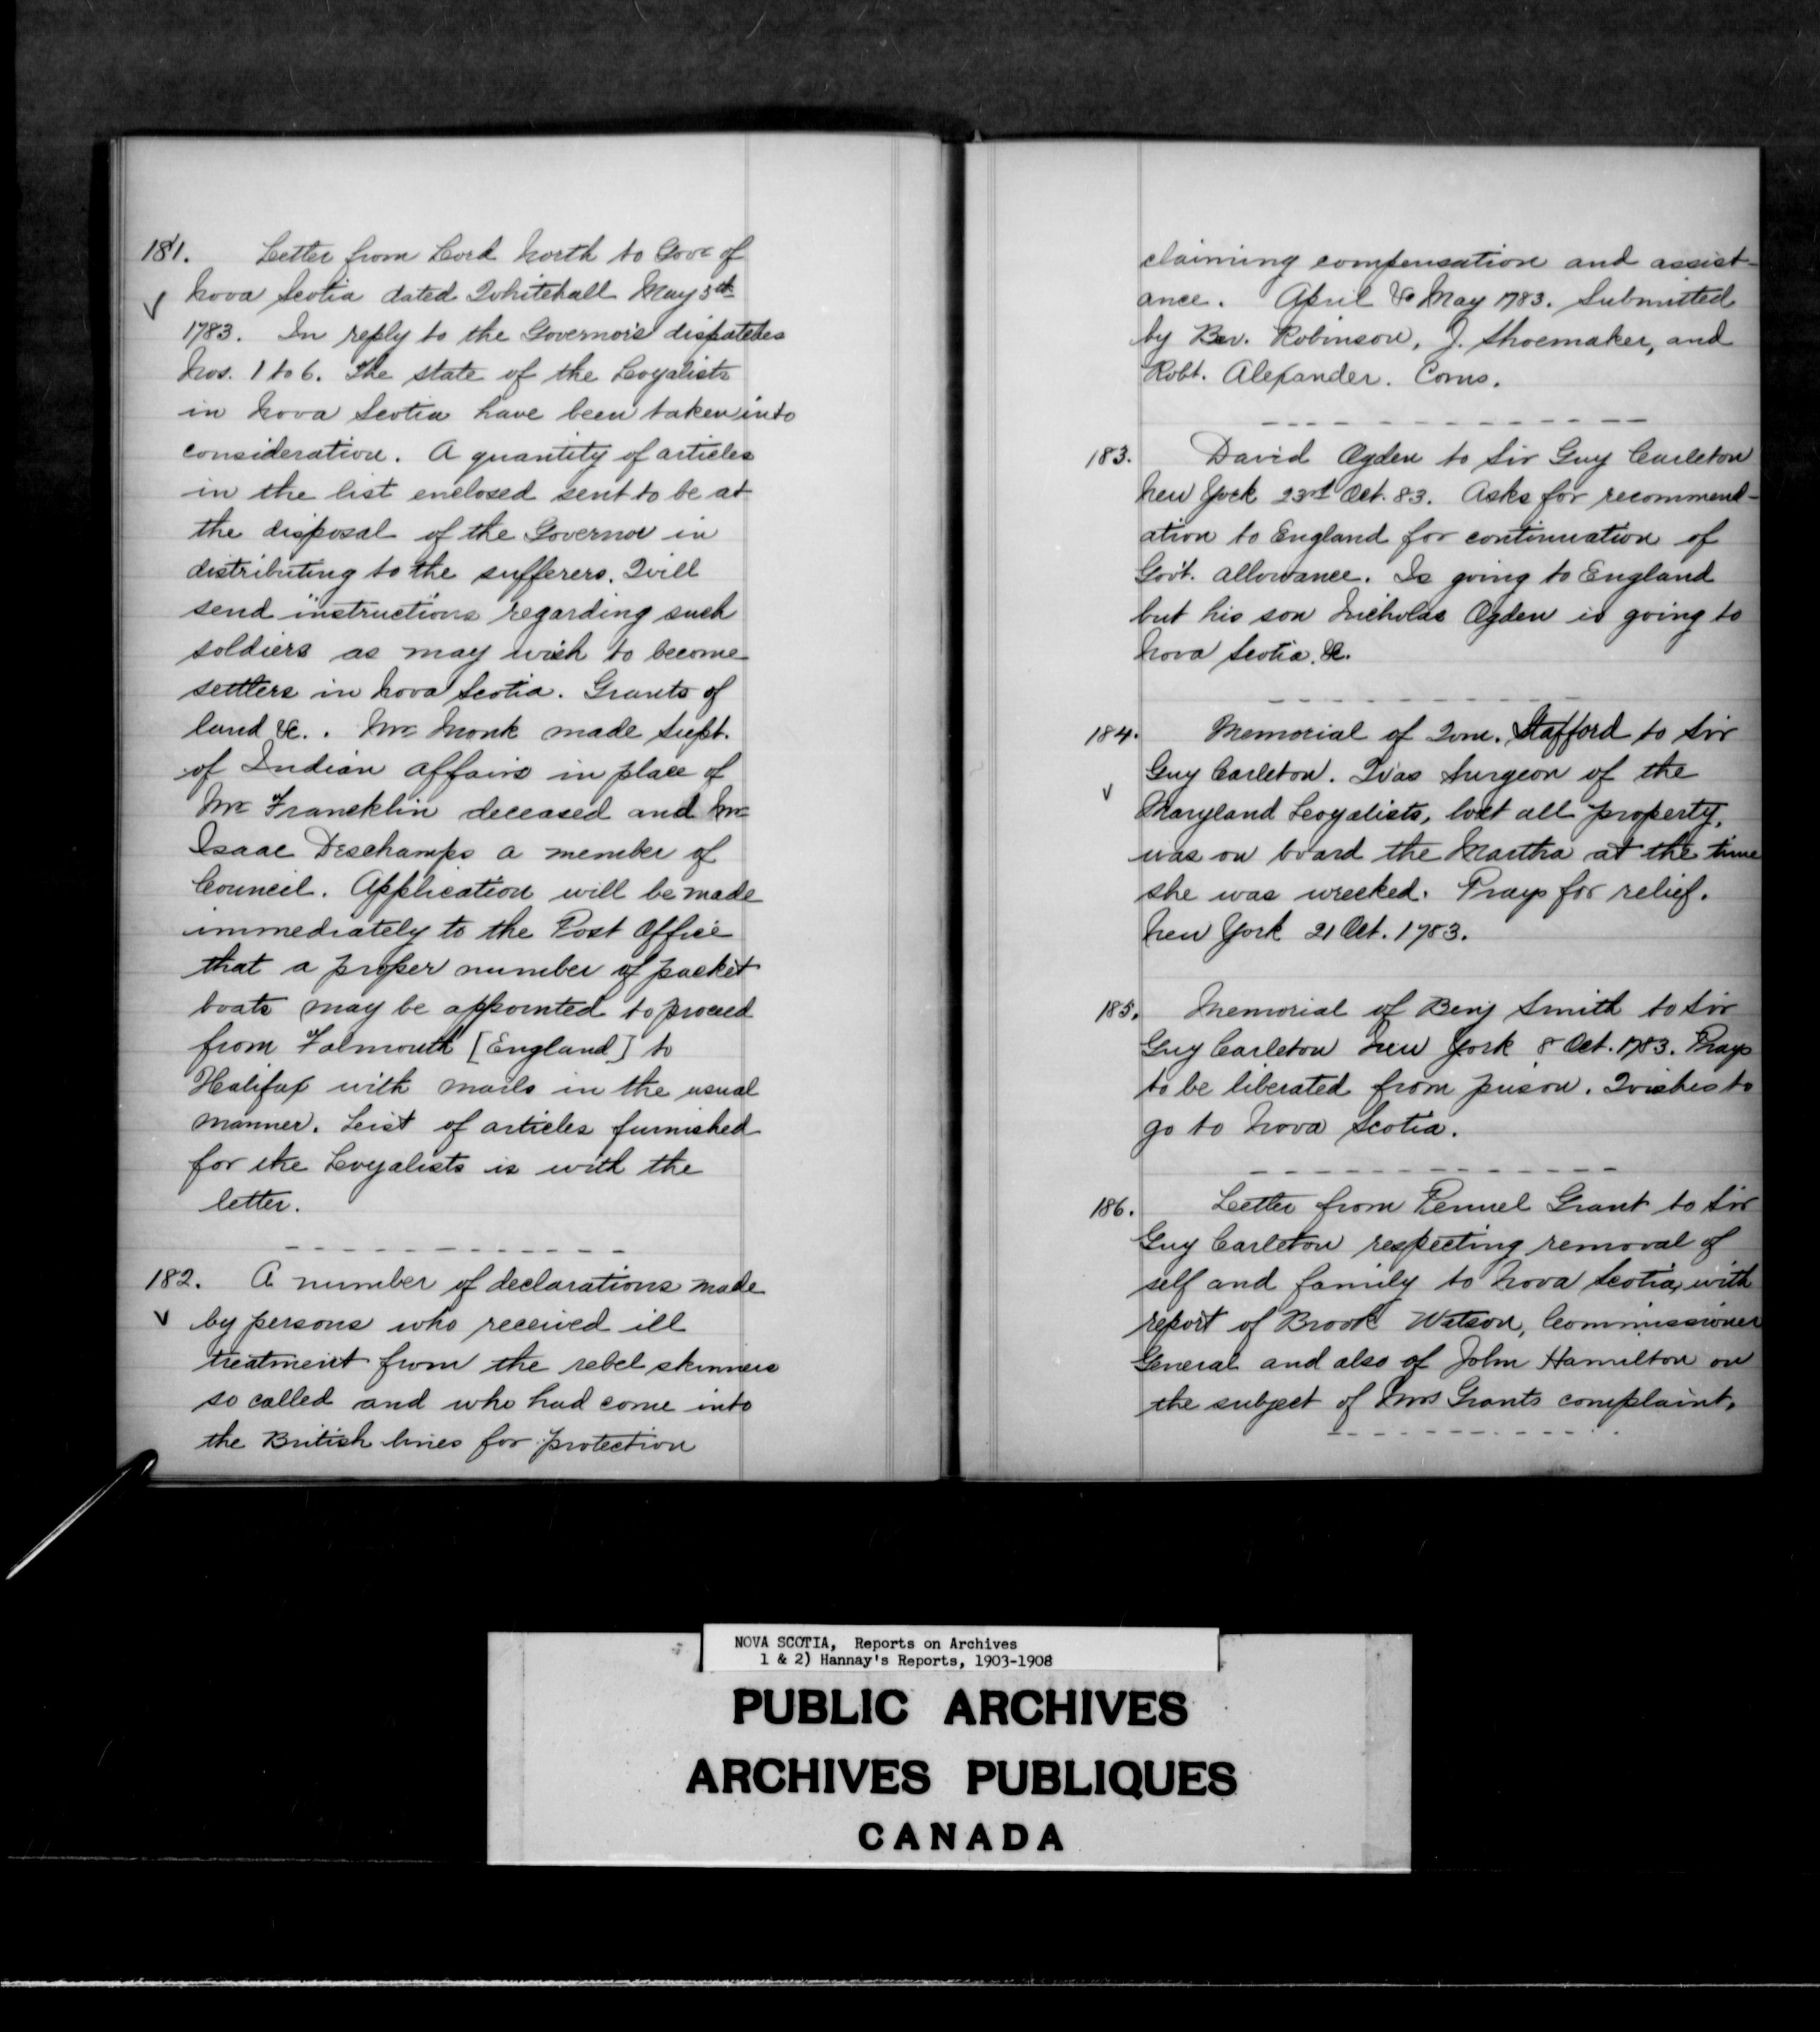 181. Letter from Lord North to Govr of
Nova Scotia dated Whitehall May 5th
1783. In reply to the Governor's dispatches
Nos. 1 to 6. The state of the Loyalists
in Nova Scotia have been taken into
consideration. A quantity of articles
in the list enclosed sent to be at
the disposal of the Governor in
distributing to the sufferers. Will
send "instructions" regarding such
soldiers as may wish to become
settlers in Nova Scotia. Grants of
land &c. . Mr Monk made Supt.
of Indian Affairs in place of
Mr Francklin deceased and Mr
Isaac Deschamps a member of
Council. Application will be made
immediately to the Post Office
that a proper number of packet
boats may be appointed to proceed
from Falmouth [England] to
Halifax with mails in the usual
manner. List of articles furnished
for the Loyalists is with the
letter.
182. A number of declarations made
by persons who received ill
treatment from the rebel skinners
so called and who had come into
the British lines for protection
claiming compensation and assist-
ance. April & May 1783. Submitted
by Bev. Robinson, J. Shoemaker, and
Robt. Alexander. Coms.
183. David Ogden to Sir Guy Carleton
New York 23rd Oct. 83. Asks for recommend-
ation to England for continuation of
Gov't. allowance. Is going to England
but his son Nicholas Ogden is going to
Nova Scotia. &c.
184. Memorial of Wm. Stafford to Sir
Guy Carleton. Was Surgeon of the
Maryland Loyalists, lost all property,
was on board the Martha at the time
she was wrecked. Prays for relief.
New York 21 Oct. 1783.
185. Memorial of Benj Smith to Sir
Guy Carleton New York 8 Oct. 1783. Prays
to be liberated from prison. Wishes to
go to Nova Scotia.
186. Letter from Penuel Grant to Sir
Guy Carleton respecting removal of
self and family to Nova Scotia, with
report of Brook Watson, Commissioner
General and also of John Hamilton on
the subject of Mrs Grants complaint.
NOVA SCOTIA, Reports on Archives
1 & 2) Hannay's Reports, 1903-1908
PUBLIC ARCHIVES
ARCHIVES PUBLIQUES
CANADA